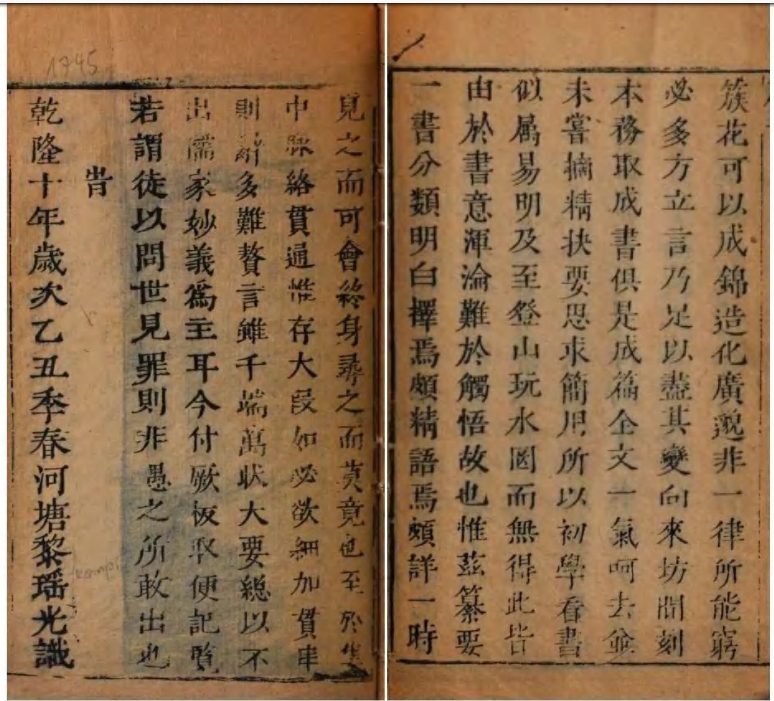 簇花可以成錦造化廣邈非一律所能窮
必多方立言乃足以盡其變向來坊間刻
本務取成書俱是成篇全文一氣呵去並
未嘗摘精抉要思求簡用所以初學看書
似属易明及至登山玩水罔而無得此皆
由於書意渾淪難於觸悟故也惟茲纂要
一書分類明白擇焉頗精語焉頗詳一時
見之而可會終身尋之而莫竟也至於
中脉絡貫通惟存大段如必欲細加貫串
則多難贅言雖千端萬狀大要總以不
出儒家妙義爲主耳今付厥板取便記覽
若謂徒以問世見罪則非愚之所敢出也
旹
乾隆十年歲次乙丑季春河塘黎瑶光識
1745